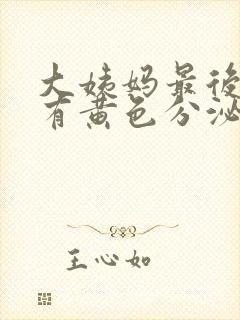 大姨妈最後
有黄色分泌
王心如